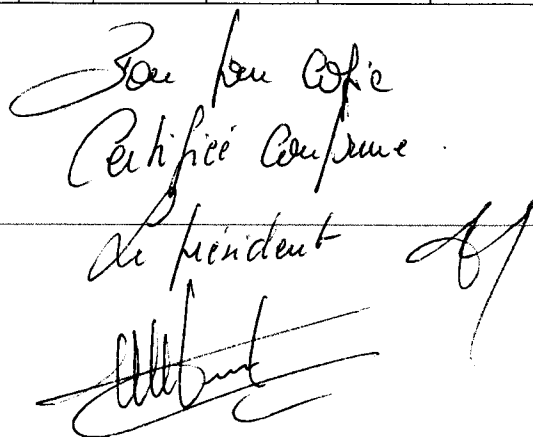 Bon pour Copie
Certifiée Conforme.
Le président